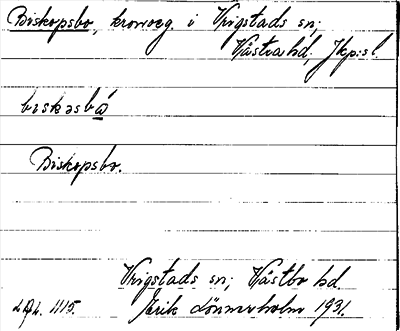 Biskopsbo, kronoeg. i Vrigstads sn;
Västra hd, Jkp:s l.
bɪskəsbɷ́
Biskopsbo.
Vrigstads sn; Västbo hd.
LAL. 1115. Jerik Lönnerholm 1931.